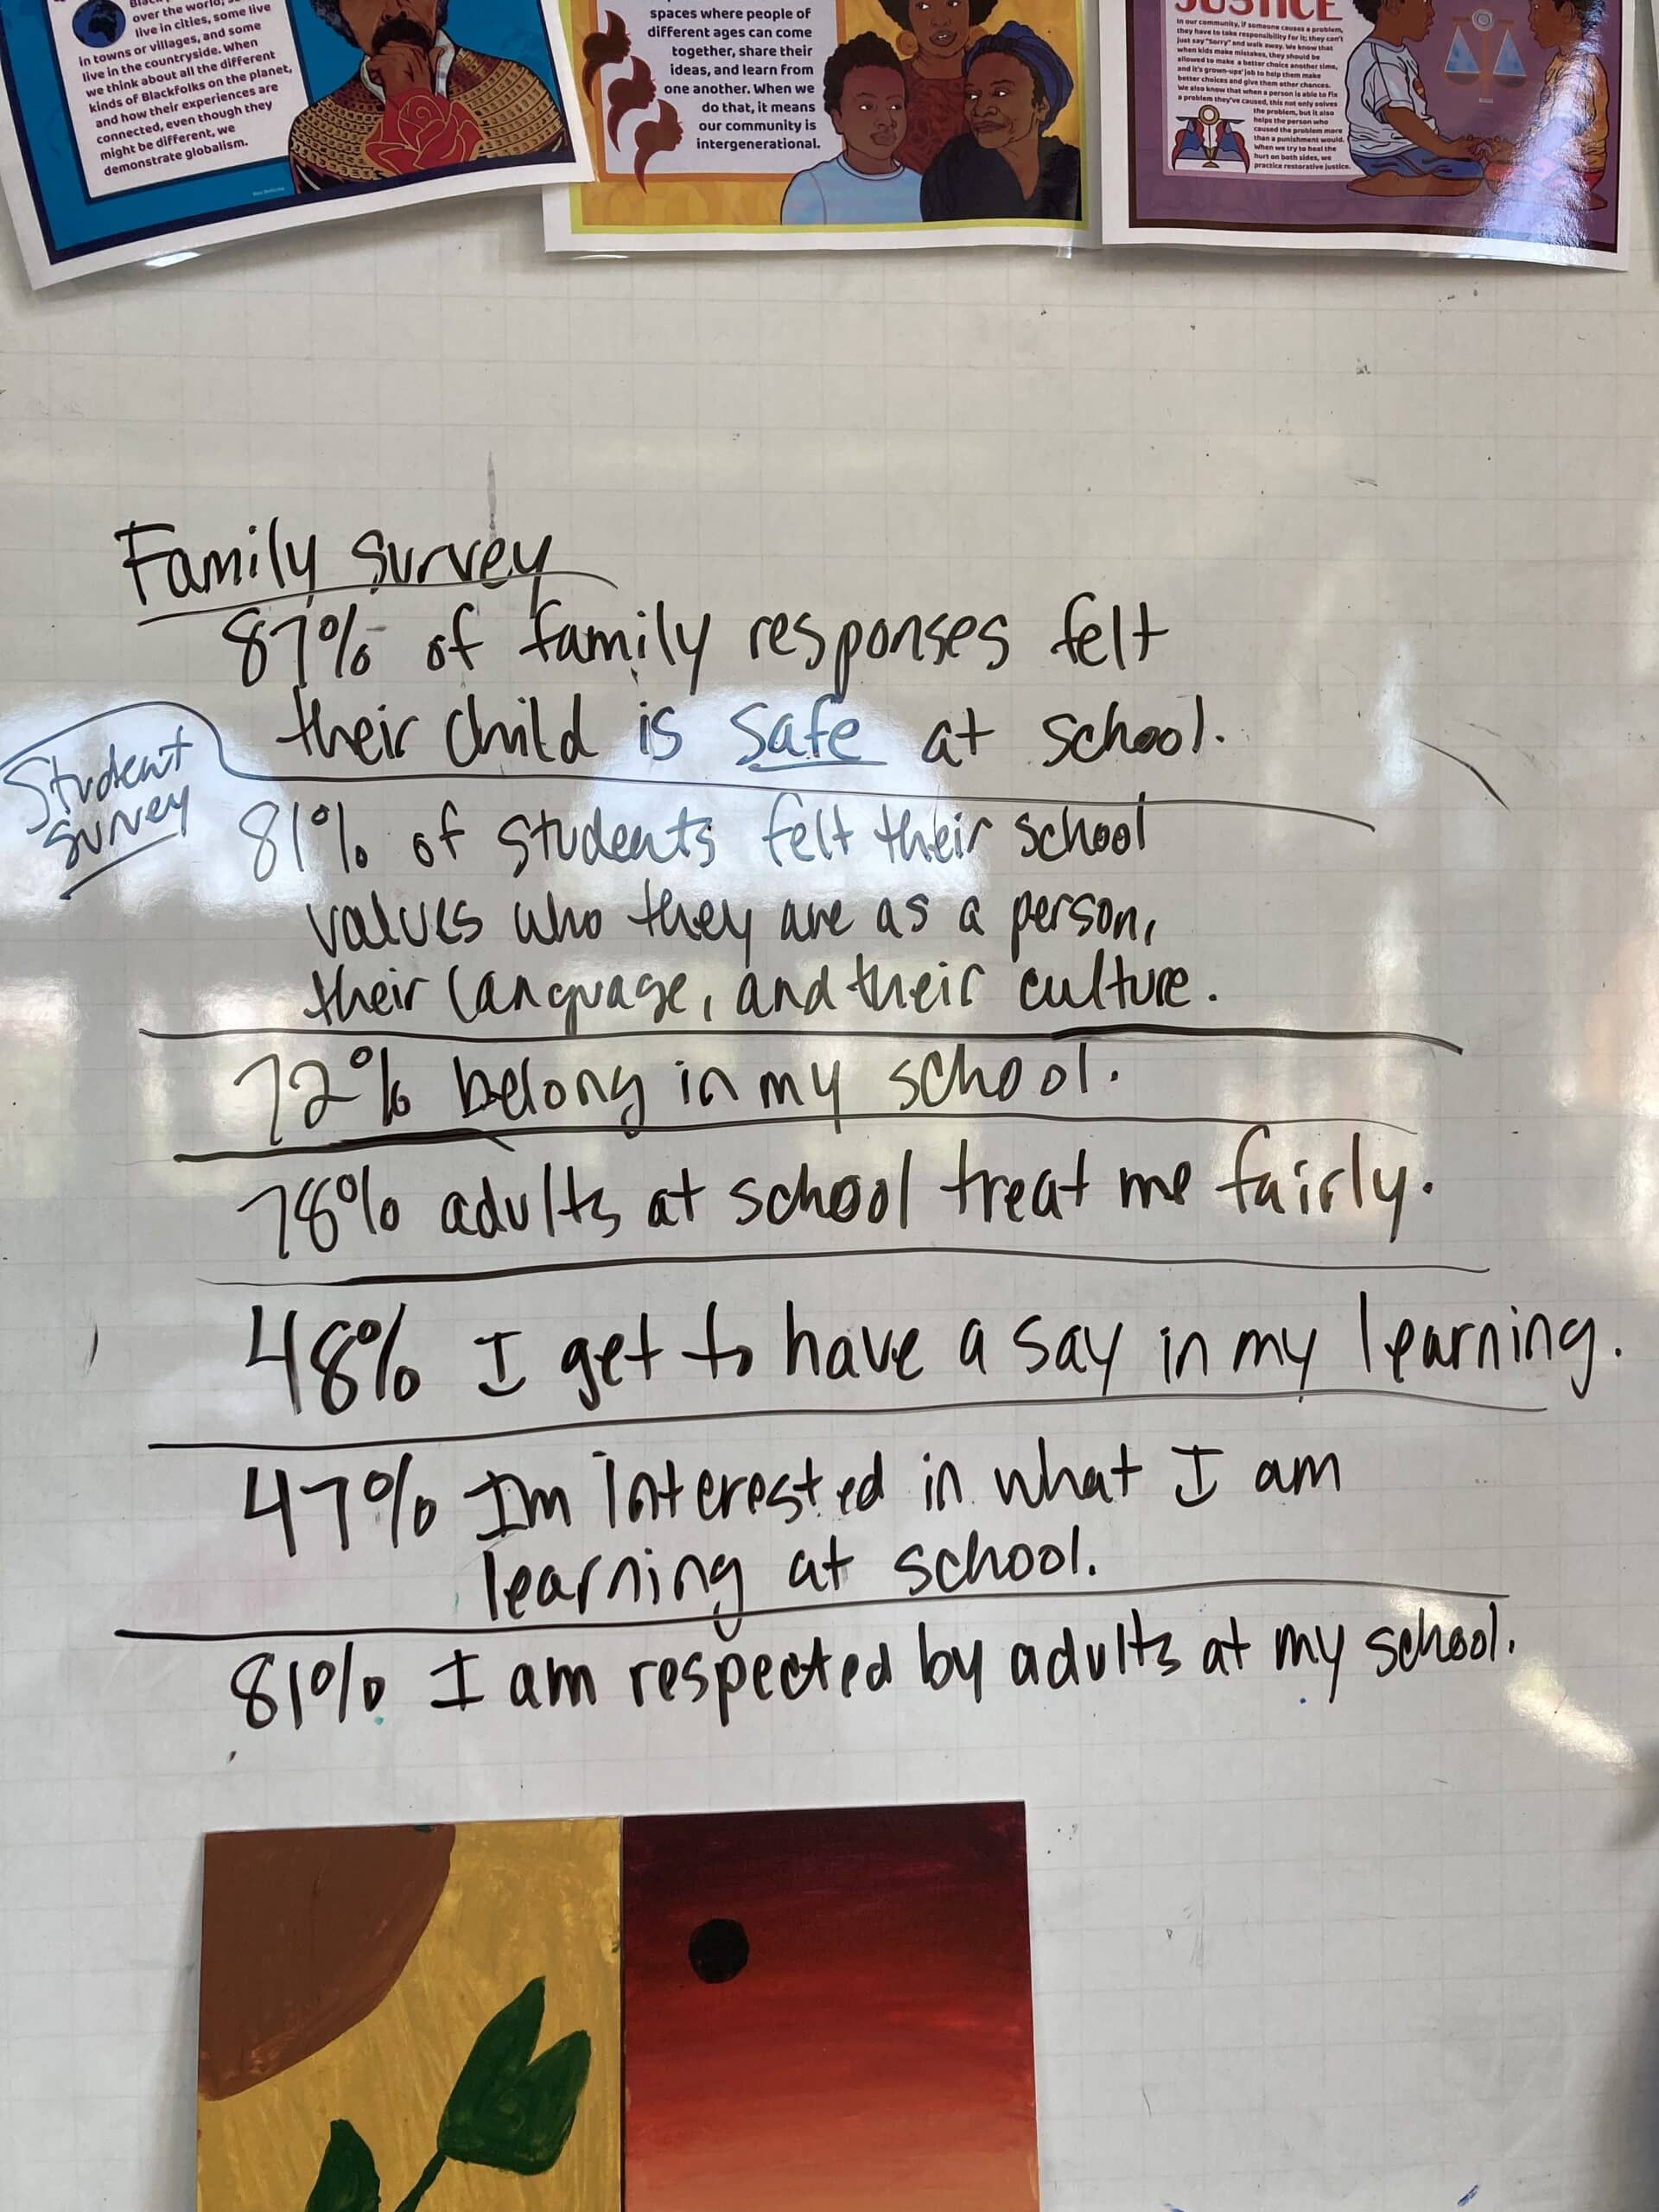 over the world, some live
live in cities, some live
in towns or villages, and some
live in the countryside. When
we think about all the different
kinds of Blackfolks on the planet,
and how their experiences are
connected, even though they
might be different, we
demonstrate globalism.
spaces where people of
different ages can come
together, share their
ideas, and learn from
one another. When we
do that, it means
our community is
intergenerational.
JUSTICE
In our community, if someone causes a problem,
they have to take responsibility for it; they can't
just say "Sorry" and walk away. We know that
when kids make mistakes, they should be
allowed to make a better choice another time,
and it's grown-ups' job to help them make
better choices and give them other chances.
We also know that when a person is able to fix
a problem they've caused, this not only solves
the problem, but it also
helps the person who
caused the problem more
than a punishment would.
When we try to heal the
hurt on both sides, we
practice restorative justice.
Family survey
87% of family responses felt
their child is safe at school.
Student
survey
81% of students felt their school
values who they are as a person,
their language, and their culture.
72% belong in my school.
78% adults at school treat me fairly.
48% I get to have a say in my learning.
47% Im interested in what I am
learning at school.
81% I am respected by adults at my school.